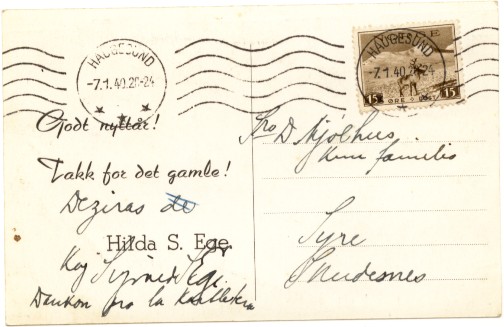 HAUGESUND
-7.1.40.20-24
HAUGESUND
-7.1.40.20-24
15 ØRE 15
Godt nyttår!
Takk for det gamle!
Deziras de
Hilda S. Ege.
Kaj Sigurd Ege.
Dankon pro la
Fro D. Mjølhus
kun familio
Syre
Skudesnes